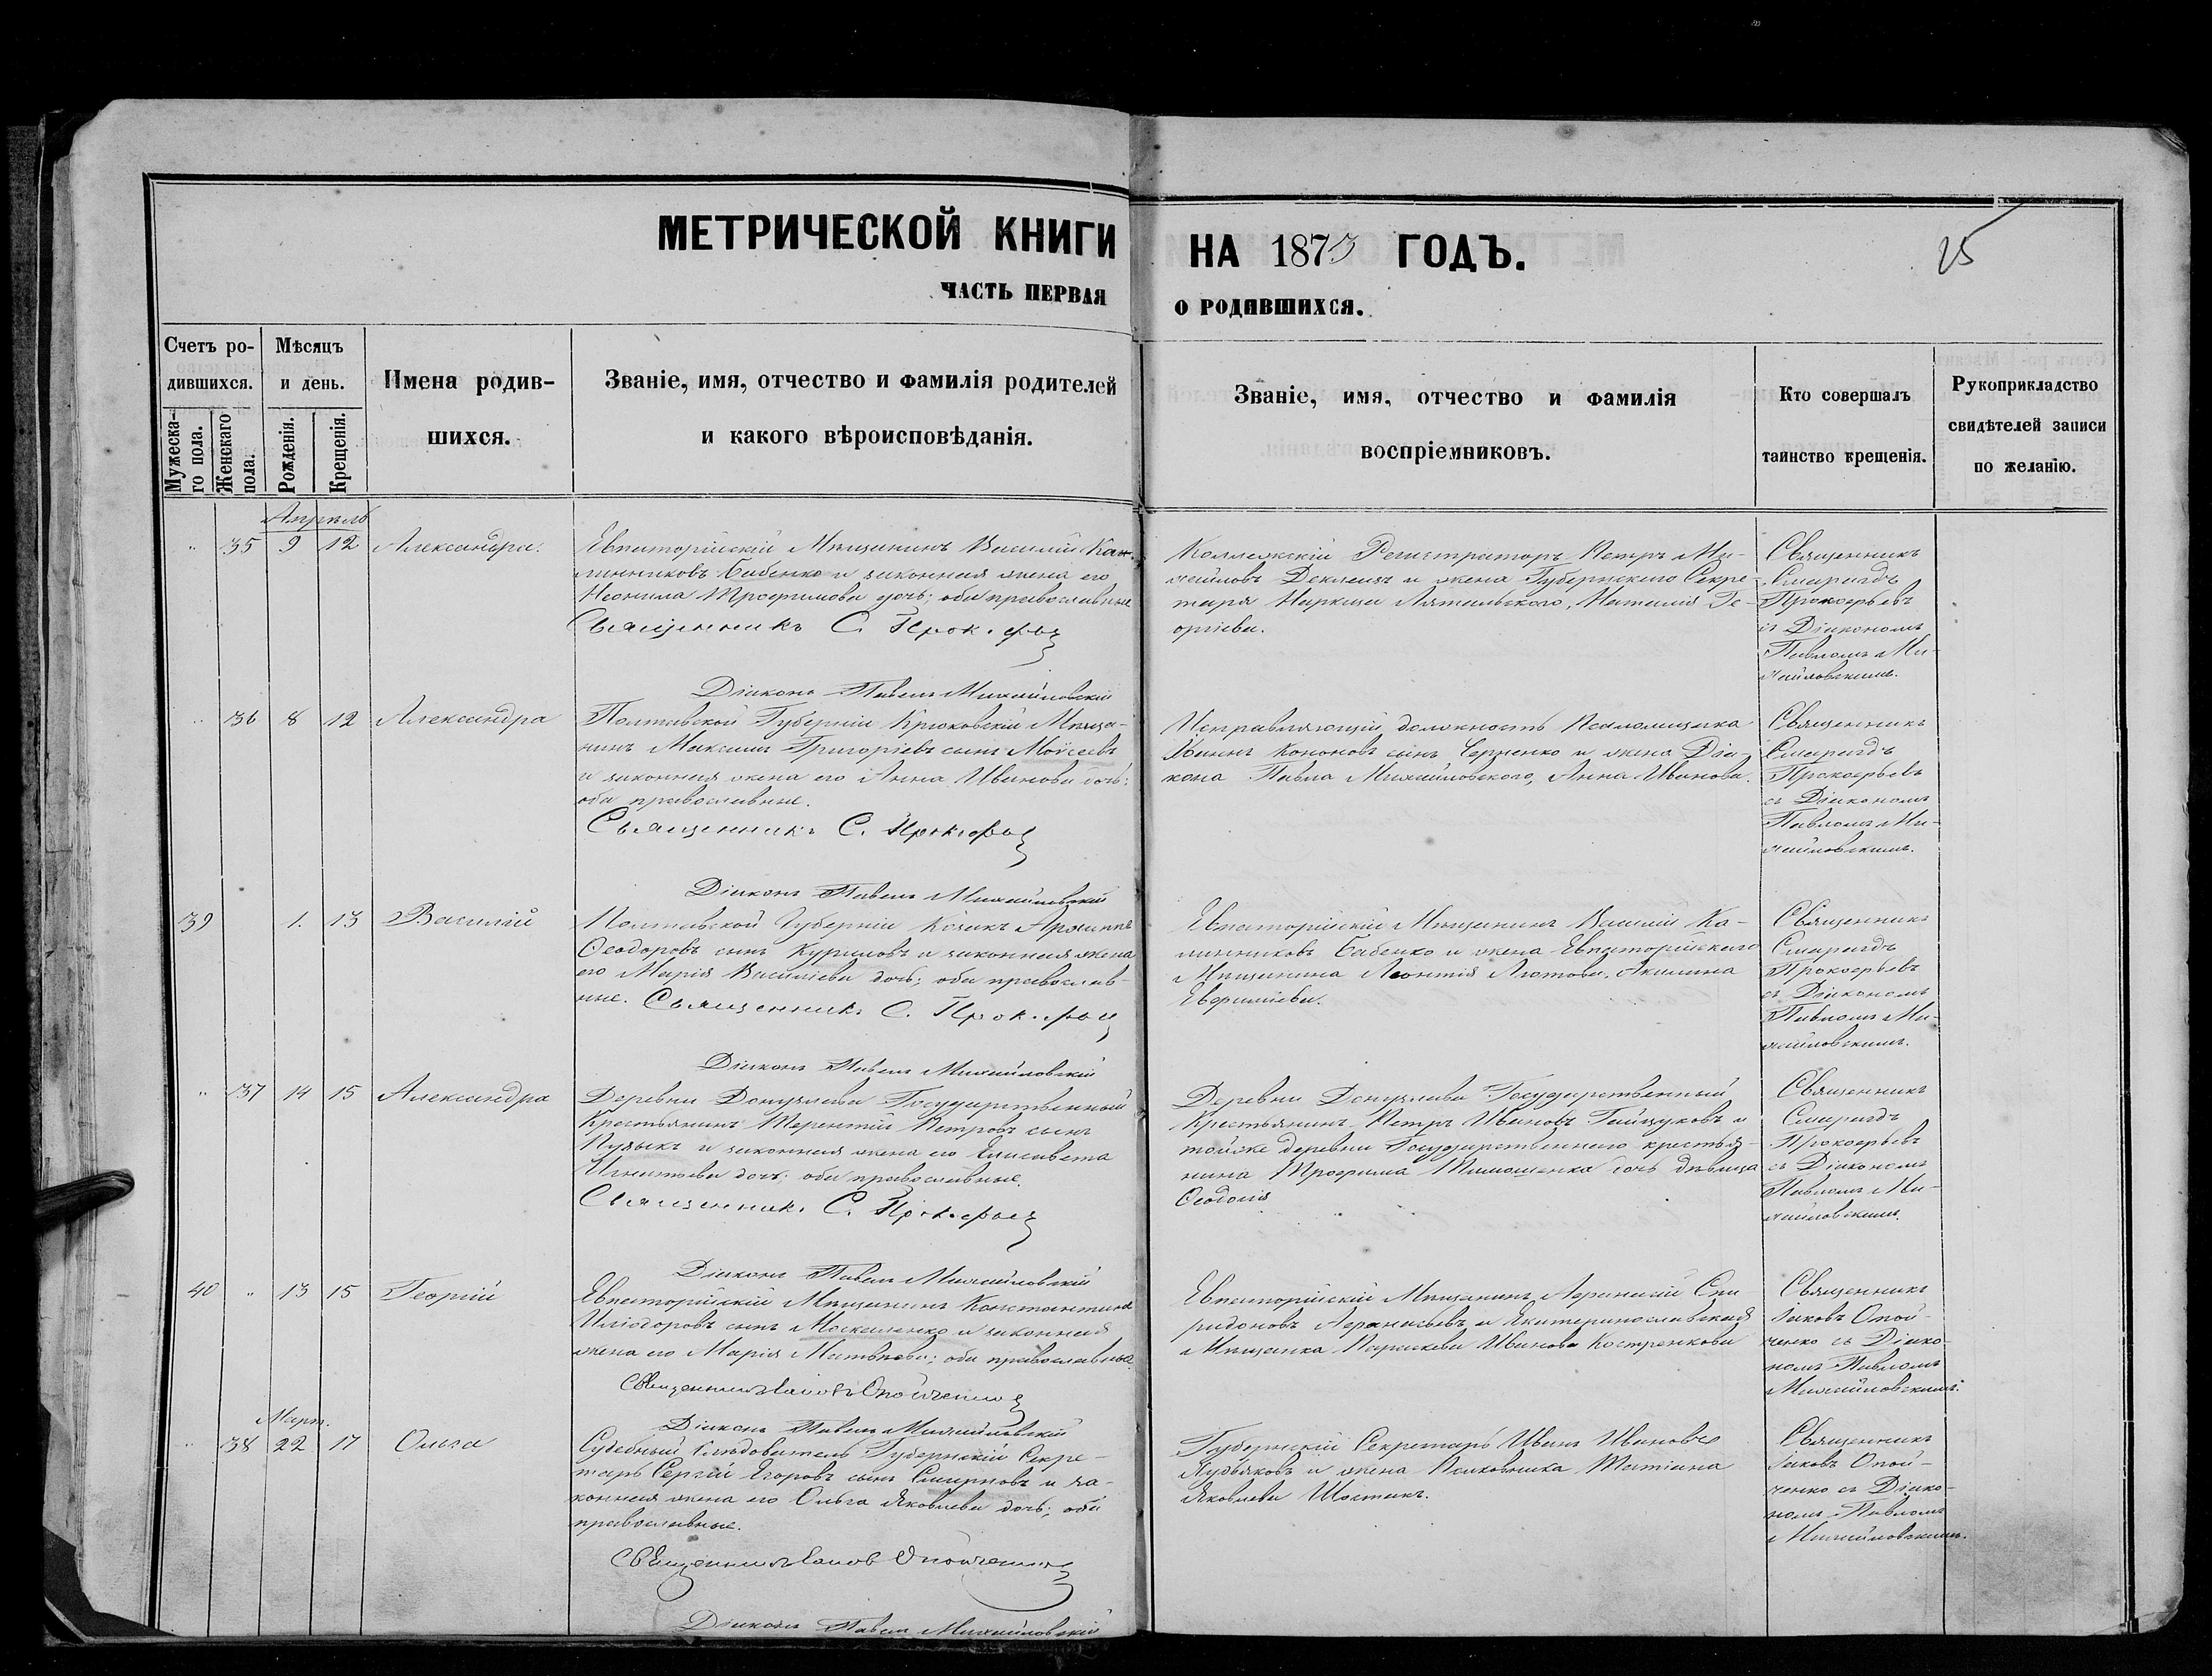 МЕТРИЧЕСКОЙ КНИГИ НА 1873 ГОДЪ.
25
ЧАСТЬ ПЕРВАЯ О РОДИВШИХСЯ.
Счетъ ро-
дившихся.
Мужеска-
го пола.
Женскаго
пола.
Мѣсяцъ
и день.
Рожденія.
Крещенія.
Имена родив-
шихся.
Званіе, имя, отчество и фамилія родителей
и какого вѣроисповѣданія.
Званіе, имя, отчество и фамилія
воспріемниковъ.
Кто совершалъ
таинство крещенія.
Рукоприкладство
свидѣтелей записи
по желанію.
Апрель
" 35 9 12 Александра.
Евпаторійскій Мѣщанинъ Василій Ка-
линниковъ Бабенко и законная жена его
Неонила Трофимова дочь; оба православные
Священникъ С. Прокофьев
Діаконъ Павелъ Михайловскій
Коллежскій Регистраторъ Петръ Ми-
хайловъ и жена Губернскаго Секре-
таря Наркиса Лятальскаго, Наталія Ге-
оргіева.
Священникъ
Смарагдъ
Прокофьевъ
съ Діакономъ
Павломъ Ми-
хайловскимъ.
" 36 8 12 Александра
Полтавской Губерніи Крюковскій Мѣща-
нинъ Максимъ Григоріевъ сынъ Моісеевъ
и законная жена его Анна Иванова дочь;
оба православные.
Священникъ С. Прокофьев
Діаконъ Павелъ Михайловскій
Исправляющій должность Псаломщика
Кононовъ сынъ Черненко и жена Діа-
кона Павла Михайловскаго, Анна Иванова.
Священникъ
Смарагдъ
Прокофьевъ
съ Діакономъ
Павломъ Ми-
хайловскимъ.
39 1. 13 Василій
Полтавской Губерніи Козакъ
Ѳеодоровъ сынъ Куриловъ и законная жена
его Марія Василіева дочь; оба православ-
ные. Священникъ С. Прокофьев
Діаконъ Павелъ Михайловскій
Евпаторійскій Мѣщанинъ Василій Ка-
линниковъ Бабенко и жена Евпаторійскаго
Мѣщанина Леонтія Лютова, Акилина
Евфиміева.
Священникъ
Смарагдъ
Прокофьевъ
съ Діакономъ
Павломъ Ми-
хайловскимъ.
" 37 14 15 Александра
Деревни Донузлава Государственный
Крестьянинъ Терентій Петровъ сынъ
Пузыкъ и законная жена его Елисавета
Игнатьева дочь; оба православные.
Священникъ С. Прокофьев
Діаконъ Павелъ Михайловскій
Деревни Донузлава Государственный
Крестьянинъ Петръ Ивановъ Гайдуковъ и
тойже деревни Государственнаго крестья-
нина Трофима Тимошенка дочь дѣвица
Ѳеодосія
Священникъ
Смарагдъ
Прокофьевъ
съ Діакономъ
Павломъ Ми-
хайловскимъ.
40 " 13 15 Георгій
Евпаторійскій Мѣщанинъ Константинъ
Иліодоровъ сынъ Москаленко и законная
жена его Марія Матвѣева; оба православные.
Священникъ Іаковъ Опойченко
Діаконъ Павелъ Михайловскій
Евпаторійскій Мѣщанинъ Афанасій Спи-
ридоновъ Афанасьевъ и Екатеринославская
Мѣщанка Параскева Иванова Костренкова
Священникъ
Іаковъ Опой-
ченко съ Діако-
номъ Павломъ
Михайловскимъ.
Мартъ.
" 38 22 17 Ольга
Судебный Слѣдователь Губернскій Секре-
тарь Сергій Егоровъ сынъ Смирновъ и за-
конная жена его Ольга Яковлева дочь; оба
православные.
Священникъ Іаковъ Опойченко
Діаконъ Павелъ Михайловскій
Губернскій Секретарь Иванъ Ивановъ
Пудяковъ и жена Полковника Татіана
Яковлева Шостакъ.
Священникъ
Іаковъ Опой-
ченко съ Діако-
номъ Павломъ
Михайловскимъ.